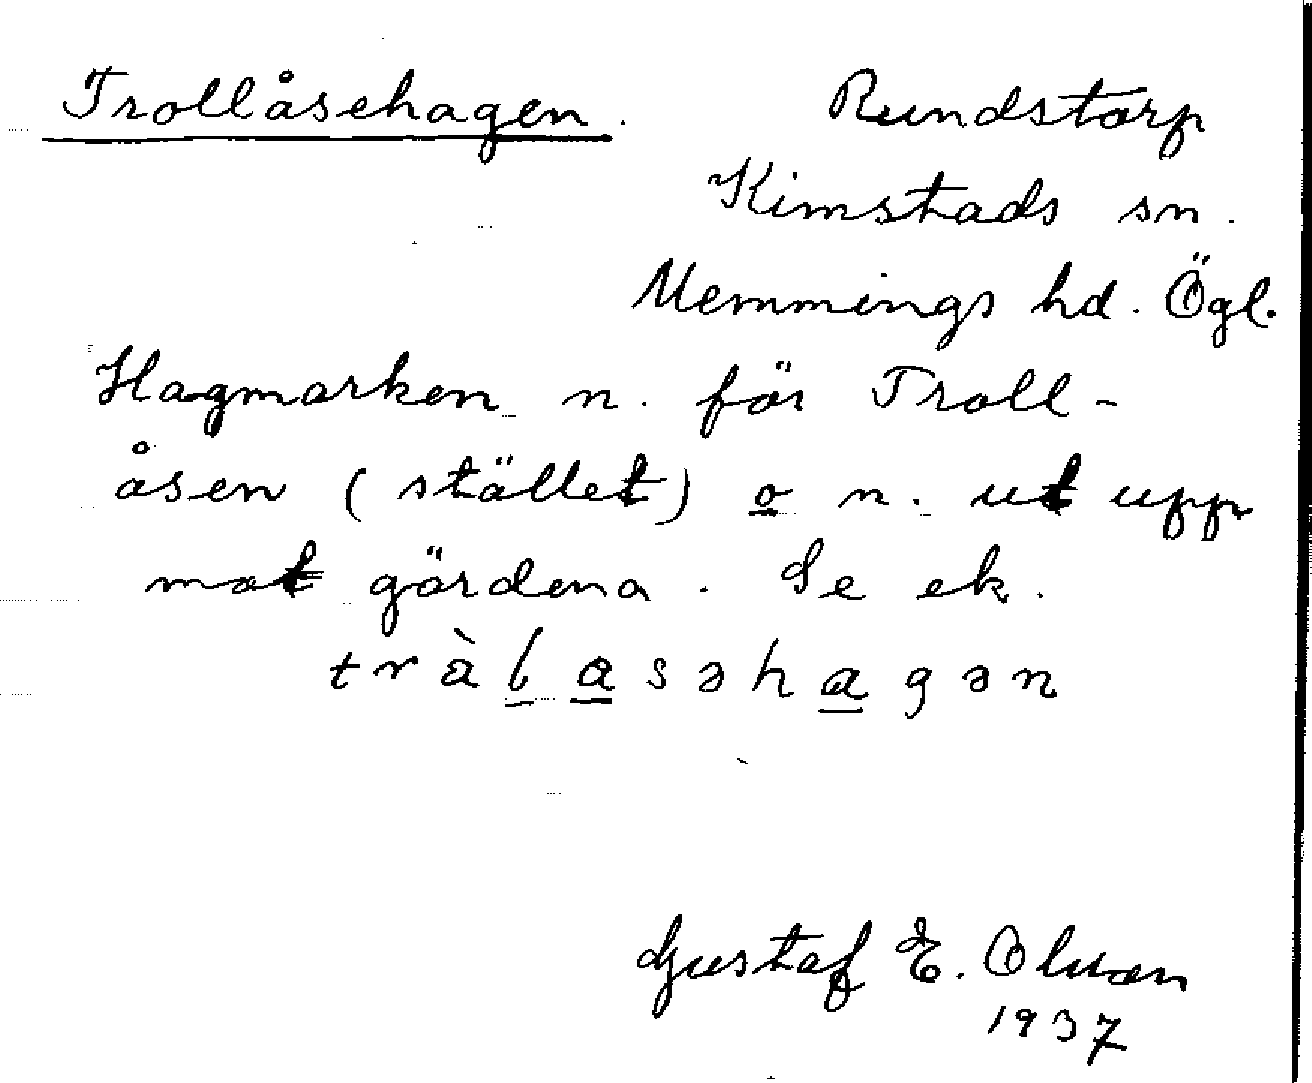 Trollåsehagen. Rundstorp
Kimstads sn.
Memmings hd. Ögl.
Hagmarken n. för Troll-
åsen (stället) o n. ut upp
mot gärdena. Se ek.
tràlasəhagən
Gustaf E. Olsson
1937